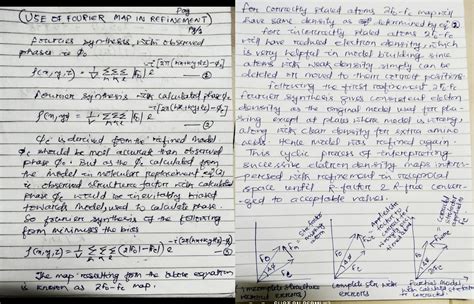 (USE OF FOURIER MAP IN REFINEMENT)
Fourier synthesis with observed
phase is
f(x,y,z) = 1/V Σ Σ Σ |F₀| e^-i[2π(hx+ky+lz)-φ₀] ①
Fourier synthesis with calculated phase φc
f(x,y,z) = 1/V Σ Σ Σ |F₀| e^-i[2π(hx+ky+lz)-φc] ②
φc is derived from the refined model
φc should be most accurate than observed
phase φ₀. But as the φc calculated from
the model in molecular replacement eqn ②
is observed structure factor with calculated
phase φc would be inevitably biased
towards model used to calculate phase.
So fourier synthesis of the following
form minimises the bias
f(x,y,z) = 1/V Σ Σ Σ (2|F₀|-|Fc|) e^-i[2π(hx+ky+lz)-φc] ③
The map resulting from the above equation
is known as 2Fo-Fc map.
For correctly placed atoms 2Fo-Fc map will
have same density as determined by eqn ②
For incorrectly placed atoms 2Fo-Fc
will have reduced electron density, which
is very helpful in model building since
atoms with weak density simply can be
deleted or moved to their correct positions
following the first refinement 2Fo-Fc
fourier synthesis gives consistent electron
density as the original model used for phas
sing except at places where model is wrong,
along with clear density for extra amino
acids. Hence model with refined again.
Thus cyclic process of interpreting
successive electron density maps inters-
persed with refinement in reciprocal
space until R-factor & R-free conver-
ged to acceptable values.
Incomplete structure
errors)
Complete str. with
errors
Partial model
with calculated structure
corrected